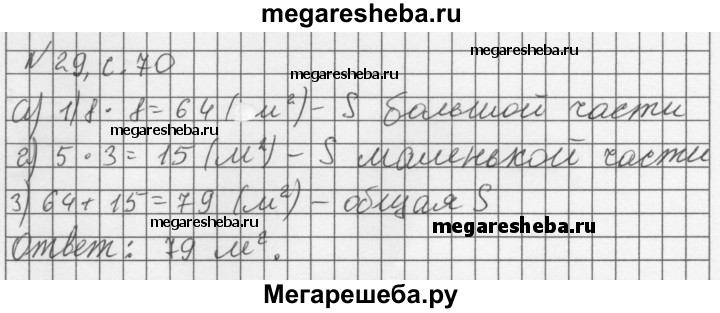 megaresheba.ru
№ 29, с. 70
megaresheba.ru
megaresheba.ru
а) 1) 8 · 8 = 64 (м²) – S большой части
megaresheba.ru
2) 5 · 3 = 15 (м²) – S маленькой части
3) 64 + 15 = 79 (м²) – общая S
megaresheba.ru
megaresheba.ru
Ответ: 79 м².
Мегарешеба.ру